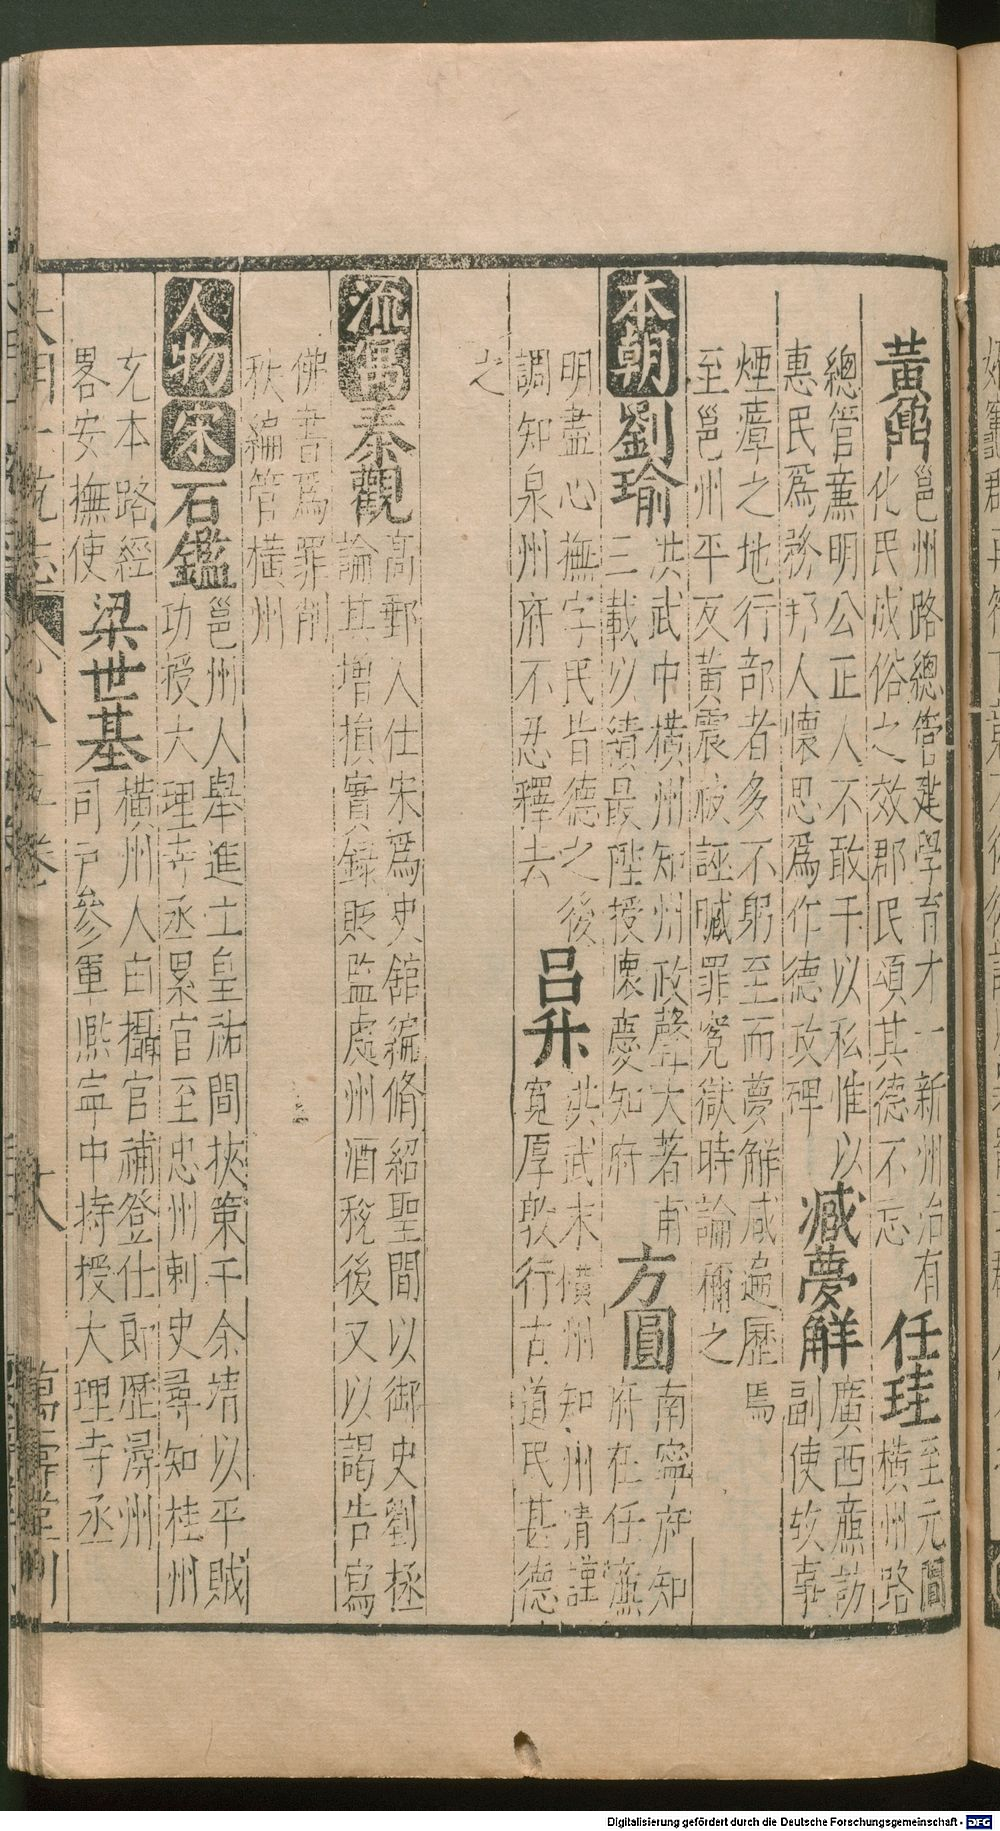 黃鼎
邕州路總管建學育才一新州治有
化民成俗之效郡民頌其德不忘
任珪
至元間
橫州路
總管亷明公正人不敢干以私惟以
惠民爲務邦人懷思爲作德政碑
臧夢解
廣西亷訪
副使故事
煙瘴之地行部者多不躬至而夢解咸遍歷焉
至邕州平反黃震被誣贓罪冤獄時論稱之
本朝劉瑜
洪武中橫州知州政聲大著甫
三載以績最陞授懷慶知府
方圓
南寧府知
府在任亷
明盡心撫字民皆德之後
調知泉州府不忍釋去
呂升
洪武末橫州知州清謹
寬厚敦行古道民甚德
之
流寓秦觀
高郵人仕宋爲史舘編脩紹聖間以御史劉拯
論其增損實録貶監處州酒稅後又以謁告寫
佛書爲罪削
秩編管橫州
人物宋石鑑
邕州人舉進士皇祐間挾策干余靖以平賊
功授大理寺丞累官至忠州刺史尋知桂州
充本路經
畧安撫使
梁世基
橫州人由攝官補登仕郎歷潯州
司戶參軍熙寧中特授大理寺丞
大明一統志
萬壽堂刊
Digitalisierung gefördert durch die Deutsche Forschungsgemeinschaft - DFG